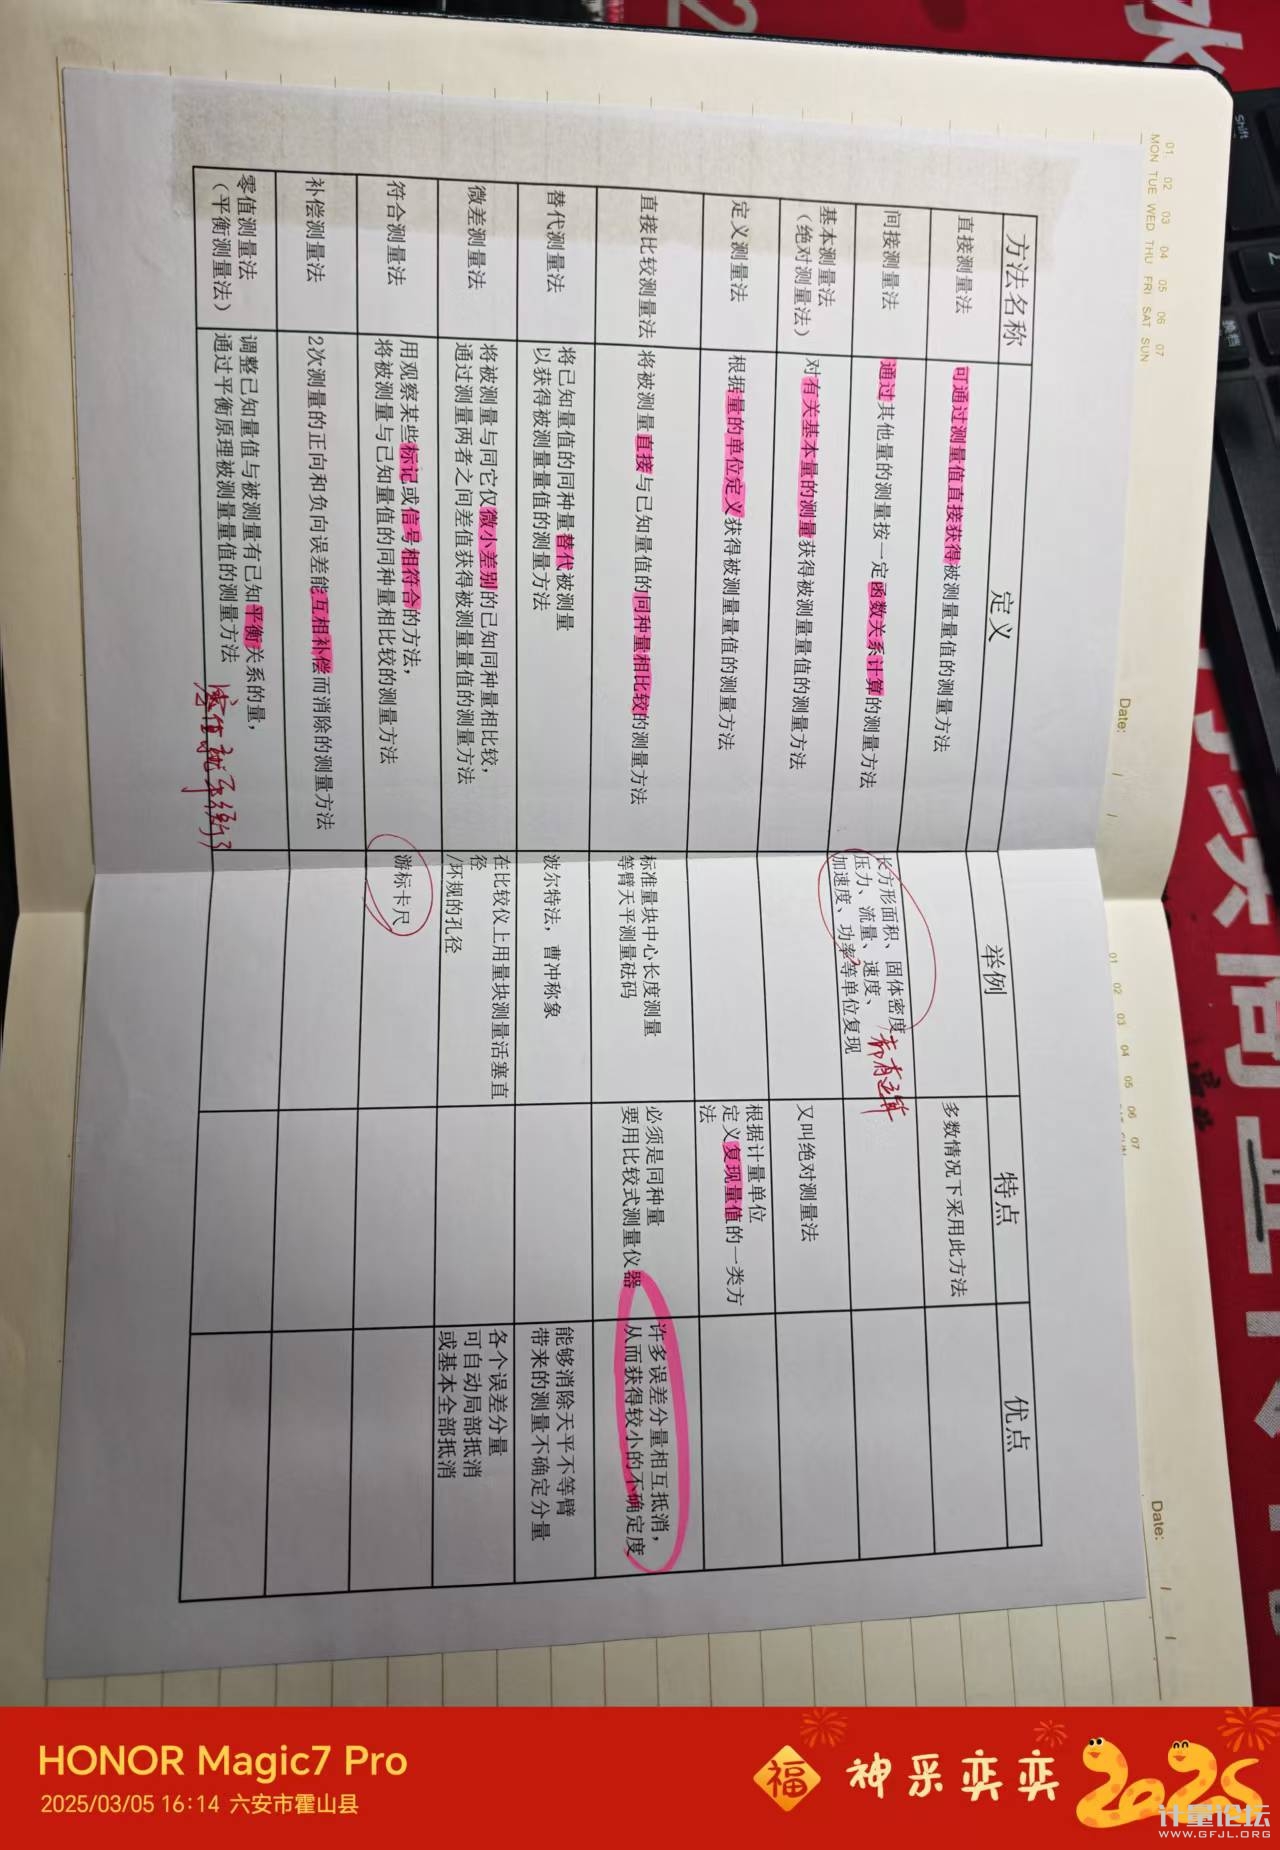 方法名称
定义
举例
特点
优点
直接测量法
可通过测量值直接获得被测量量值的测量方法
多数情况下采用此方法
间接测量法
通过其他量的测量按一定函数关系计算的测量方法
长方形面积、固体密度
压力、流量、速度、
加速度、功率等单位复现
都有运算
基本测量法
（绝对测量法）
对有关基本量的测量获得被测量量值的测量方法
又叫绝对测量法
定义测量法
根据量的单位定义获得被测量量值的测量方法
根据计量单位
定义复现量值的一类方
法
直接比较测量法
将被测量直接与已知量值的同种量相比较的测量方法
标准量块中心长度测量
等臂天平测量砝码
必须是同种量
要用比较式测量仪器
许多误差分量相互抵消，
从而获得较小的不确定度
替代测量法
将已知量值的同种量替代被测量
以获得被测量量值的测量方法
波尔特法，曹冲称象
能够消除天平不等臂
带来的测量不确定分量
微差测量法
将被测量与同它仅微小差别的已知同种量相比较，
通过测量两者之间差值获得被测量量值的测量方法
在比较仪上用量块测量活塞直
径
/环规的孔径
各个误差分量
可自动局部抵消
或基本全部抵消
符合测量法
用观察某些标记或信号相符合的方法，
将被测量与已知量值的同种量相比较的测量方法
游标卡尺
补偿测量法
2次测量的正向和负向误差能互相补偿而消除的测量方法
零值测量法
（平衡测量法）
调整已知量值与被测量有已知平衡关系的量，
通过平衡原理被测量量值的测量方法
零值就平衡了
01 02 03 04 05 06 07
MON TUE WED THU FRI SAT SUN
Date: / /
01 02 03 04 05 06 07
Date: / /
Shift
换档
HONOR Magic7 Pro
2025/03/05 16:14 六安市霍山县
福
神采奕奕
2025
计量论坛
WWW.GFJL.ORG